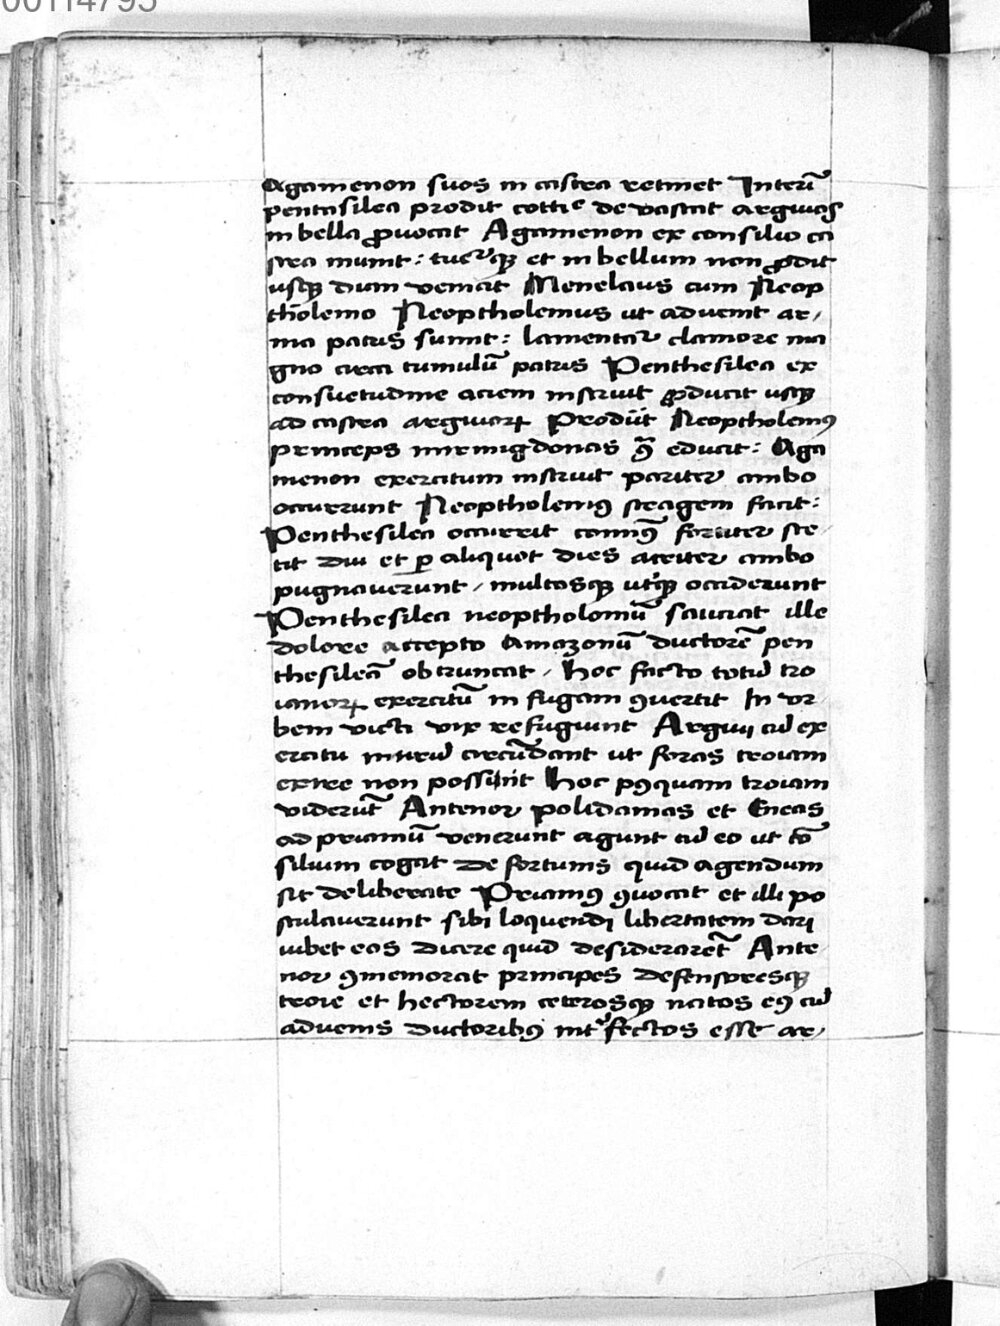 00114795
Agamenon suos in castra retinet Interī
pentasilea prodit cottie devastat argivos
in bella ꝓvocat Agamenon ex consilio ca
stra munit : tuetᷣqꝫ et in bellum non ꝓdit
usqꝫ dum veniat Menelaus cum Neop
tholemo Neoptholemus ut advenit ar/
ma patris sunit : lamentaᷣ clamore ma
gno circa tumulū patris Penthesilea ex
consuetudine aciem instruit ꝓducit usqꝫ
ad castra argivoꝝ Prodiit Neoptholemꝰ
princeps mirmigdonas ꝯͣ educit : Aga
menon exercitum instruit pariter ambo
occurrunt Neoptholemꝰ stragem facit :
Penthesilea occurrit cominꝰ fortiter ste
tit diu et ꝑ aliquot dies acriter ambo
pugnaverunt / multosqꝫ utͥqꝫ occiderunt
Penthesilea neoptholomū sauciat ille
dolore accepto Amazonū ductorē pen
thesileā obtruncat / hoc facto totū tro
ianoꝝ exercitū in fugam ꝯvertit In ur
bem victi vix refugiunt Argivi cū ex
ercitu murū circūdant ut foras troiam
exire non possint hoc pꝰquam troiani
viderūt Antenor polidamas et Eneas
ad priamū venerunt agunt cū eo ut cō
silium cogat de fortunis quid agendum
sit deliberate Priamꝰ ꝯvocat et illi po
stulaverunt sibi loquendi libertatem dari
iubet eos dicere quid desiderarēt Ante
nor ꝯmemorat principes defensoresqꝫ
troie et hectorem ceterosqꝫ natos eꝰ cū
advenis ductoribꝰ intͬfectos esse ar/